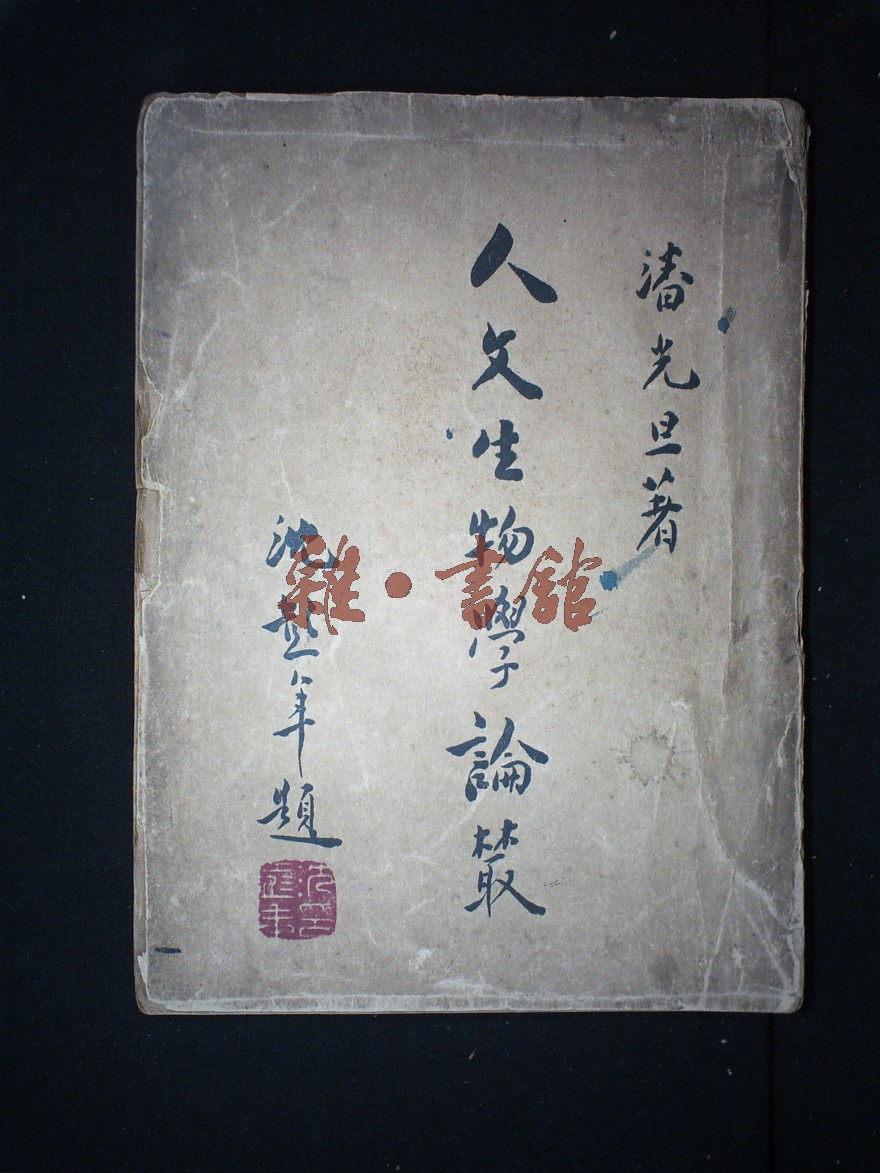 潘光旦著
人文生物學論叢
沈年題
雜·書館